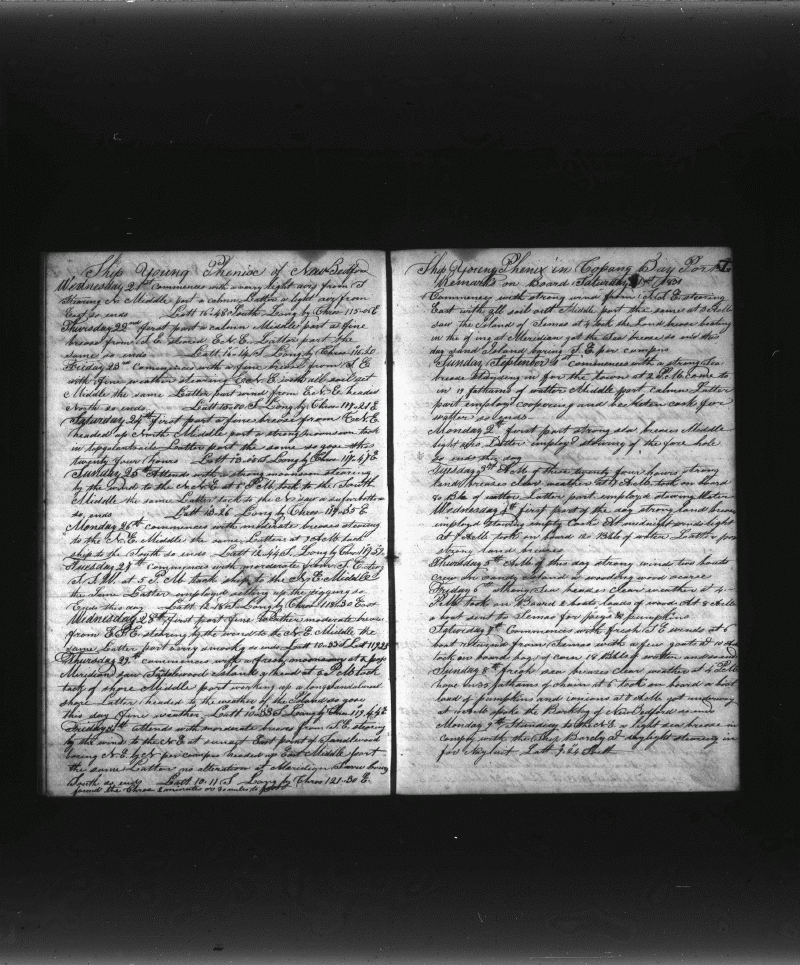 Ship Young Phenix of New Bedford
Wednesday 21st commences with a very light airs from S
Stearing N. Middle part a calm Latter a light air from
East so ends Latt 16-48 South Long by Chron 115-
Thursday 22nd first part a calm Middle part a fine
breese from S.E. steared E.N.E. Lattor part the
same so ends Latt 16-14 S Long by Chron 116-20
Friday 23rd Commences with a fine breese from S E
with fine weather stearing E.N.E. with all sail set
Middle the same Latter part wind from E.N.E. headed
North so ends Latt 15-00 S Long by Chron 117-21 E
Saturday 24th first part a fine breese from E.N.E.
headed up North Middle part a strong monsoon took
in topgalantsails Latter part the same so goes the
twenty four hours Latt 13-00 S Long by Chron 117-47 E
Sunday 25th Attends with a strong monsoon stearing
by the wind to the N.N.E at 1 P.M tack to the South
Middle the same Latter tack to the N saw a
so ends Latt 13-26 Long by Chron 117-35 E
Monday 26th commences with moderate breeses stearing
to the N.E. Middle the same Latter at 7 A.M tack
ship to the South so ends Latt 12-44 S Long by Chron 117-57
Tuesday 27th commences with moderate from S.E. stearing
S.S.W. at 5 P.M. tack ship to the N.E. Middle
the same Latter employed setting up the jigging so
Ends this day Latt 12-18 S Long by Chron 118-30 East
Wednesday 28th first part fine weather moderate breese
from E.S.E stearing by the wind to the N.E Middle the
same Latter part very smooky so ends Latt 10-33 S Lot 119-23
Thursday 29th commences with a fresh monsoon at 2 P.M
Meridian saw Sandlewood Island ahead at 2 P.M tack
tack of shore Middle part working up along Sandalwood
shore Latter headed to the weather of the Island so goes
this day fine weather Latt 10-33 S Long by Chron 119-43 E
Friday 30th attends with moderate breeses from S.E. stearing
by the wind to the N.E at sunset East point of Sandlewood
bearing N.E. by N per compas headed up East Middle part
the same Latter no alteration at Meridian Savu bore
South so ends Latt 10-11 S Long by Chron 121-30 E
found the Chron 2 minutes or 30 miles to
Ship Young Phenix in Copang Bay Port
Remarks on Board Saturday 31st 1831
Commences with strong wind from S.E stearing
East with all sail set Middle part the same at 3 A.M
saw the Island of Semao at 4 took the Land breese beating
in the of ing at Meridian got the Sea breese so ends the
day and Island baring S E per compas
Sunday September 1st commences with a strong Sea
breese standing in for the town at 2 P.M came to
in 17 fathoms of watter Middle part calm Latter
part employd coopering and
watter so ends
Monday 2nd first part strong sea breese Middle
light airs Latter employd stowing of the fore hole
so ends the day
Tuesday 3rd A.M of these twenty four hours strong
land breeses clear weather at 9 A.M took on board
80 Bls of watter Latter part employd stowing Water
Wednesday 4th first part of the day strong land breese
employd stowing empty Cask At midnight winds light
at 9 A.M took on board 120 Bbls of water Latter part
strong land breeses
Thursday 5th A.M of this day strong wind two boats
crew on sandy Island a wooding wood scarce
Friday 6 strong Sea breeses clear weather at 4
P.M took on Board 2 boats loads of wood At 8 A.M
a boat sent to Semao for pigs & pumpkins
Saturday 7th Commences with fresh S.E winds at 6
boat returned from Semao with a few goats at 10 A.M
took on board bag of corn 18 Bbls of watter
Sunday 8th fresh sea breeses clear weather at 4 P.M
hove in 30 fathoms of chain at 5 took on board a boat
load of pumpkins and onions at 7 A.M got underway
at 10 A.M spoke the Barkley of New Bedford so ends
Monday 9th Standing to the N.E. a light sea breese in
compy with the Ship Barcly stearing in
for Latt 9-24 South